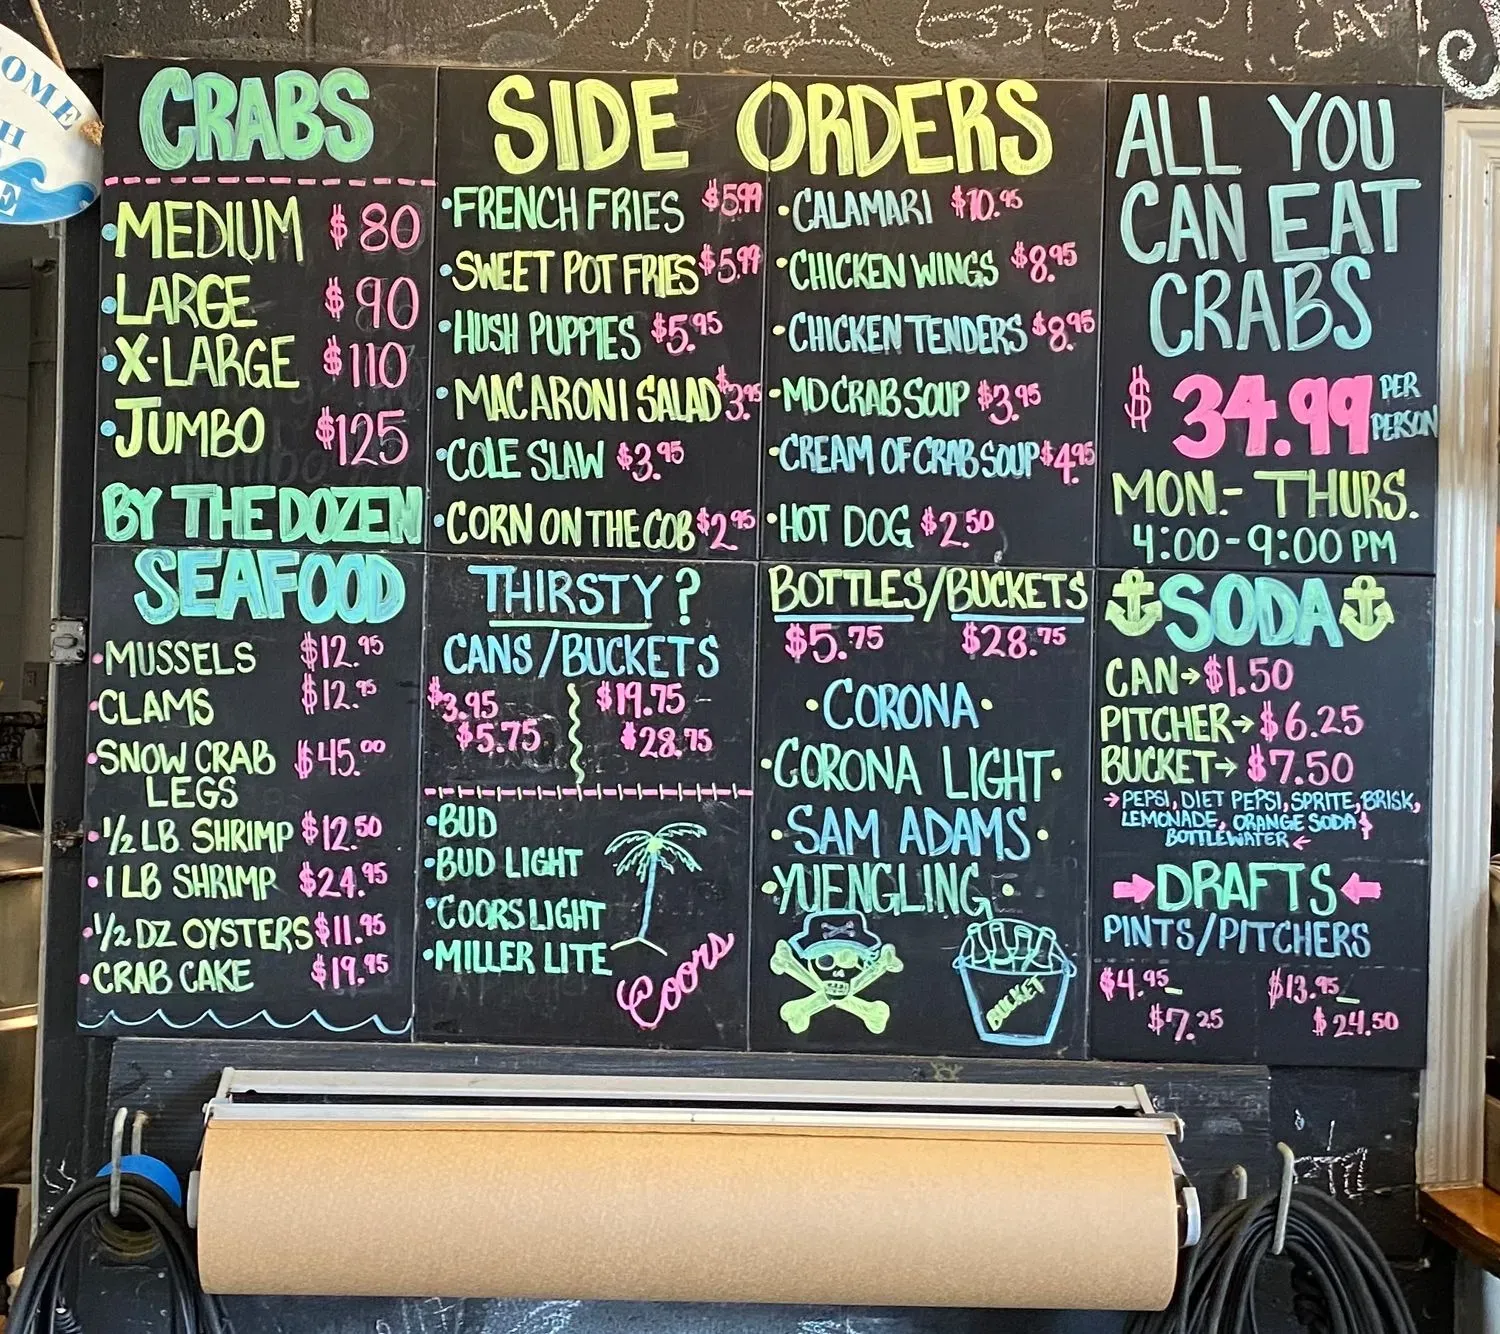 OME
H
E
ESSENCE
CRABS
MEDIUM $80
LARGE $90
X-LARGE $110
JUMBO $125
BY THE DOZEN
SIDE ORDERS
FRENCH FRIES $5.99
SWEET POT FRIES $5.99
HUSH PUPPIES $5.95
MACARONI SALAD $3.95
COLE SLAW $3.95
CORN ON THE COB $2.95
CALAMARI $10.95
CHICKEN WINGS $8.95
CHICKEN TENDERS $8.95
MD CRAB SOUP $3.95
CREAM OF CRAB SOUP $4.95
HOT DOG $2.50
ALL YOU
CAN EAT
CRABS
$34.99 PER
PERSON
MON.- THURS.
4:00-9:00 PM
SEAFOOD
MUSSELS $12.95
CLAMS $12.95
SNOW CRAB $45.00
LEGS
1/2 LB SHRIMP $12.50
1 LB SHRIMP $24.95
1/2 DZ OYSTERS $11.95
CRAB CAKE $19.95
THIRSTY?
CANS/BUCKETS
$3.95 $19.75-
$5.75 $28.75
BUD
BUD LIGHT
COORS LIGHT
MILLER LITE
Coors
BOTTLES/BUCKETS
$5.75 $28.75
CORONA
CORONA LIGHT
SAM ADAMS
YUENGLING
BUCKET
SODA
CAN→$1.50
PITCHER→$6.25
BUCKET→$7.50
→PEPSI, DIET PEPSI, SPRITE, BRISK,
LEMONADE, ORANGE SODA
BOTTLEWATER←
→DRAFTS←
PINTS/PITCHERS
$4.95- $13.95-
$7.25 $24.50